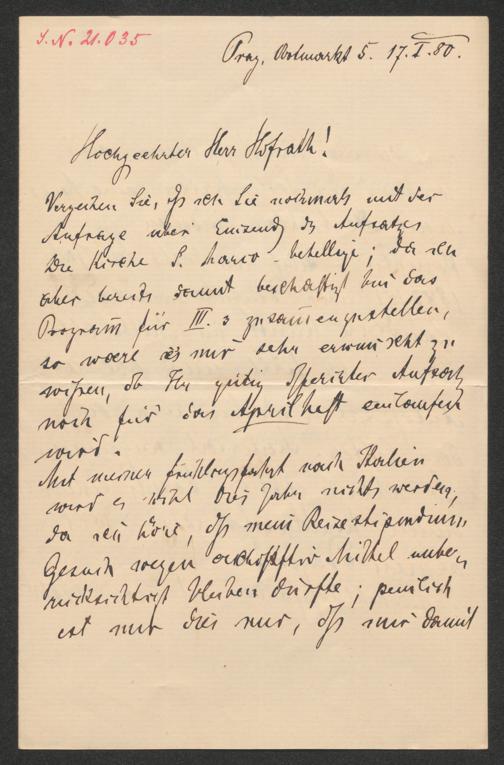 J. N. 21.035
Prag, Obstmarkt 5. 17.I.80.
Hochgeehrter Herr Hofrath!
Verzeihen Sie, dß ich Sie nochmals mit der
Anfrage über Einsendg des Aufsatzes
Die Kirche S. Marco - behellige; da ich
aber bereits damit beschäftigt bin das
Programm für III. 3 zusammenzustellen,
so wäre es mir sehr erwünscht zu
wissen, ob Ihr gütig offerirter Aufsatz
noch für das Aprilheft einlaufen
wird.
Mit meiner Frühlingsfahrt nach Italien
wird es wohl dies Jahr nichts werden,
da ich höre, dß mein Reisestipendium
Gesuch wegen erschöpfter Mittel unbe-
rücksichtigt bleiben dürfte; peinlich
ist mir dies nur, dß mir damit